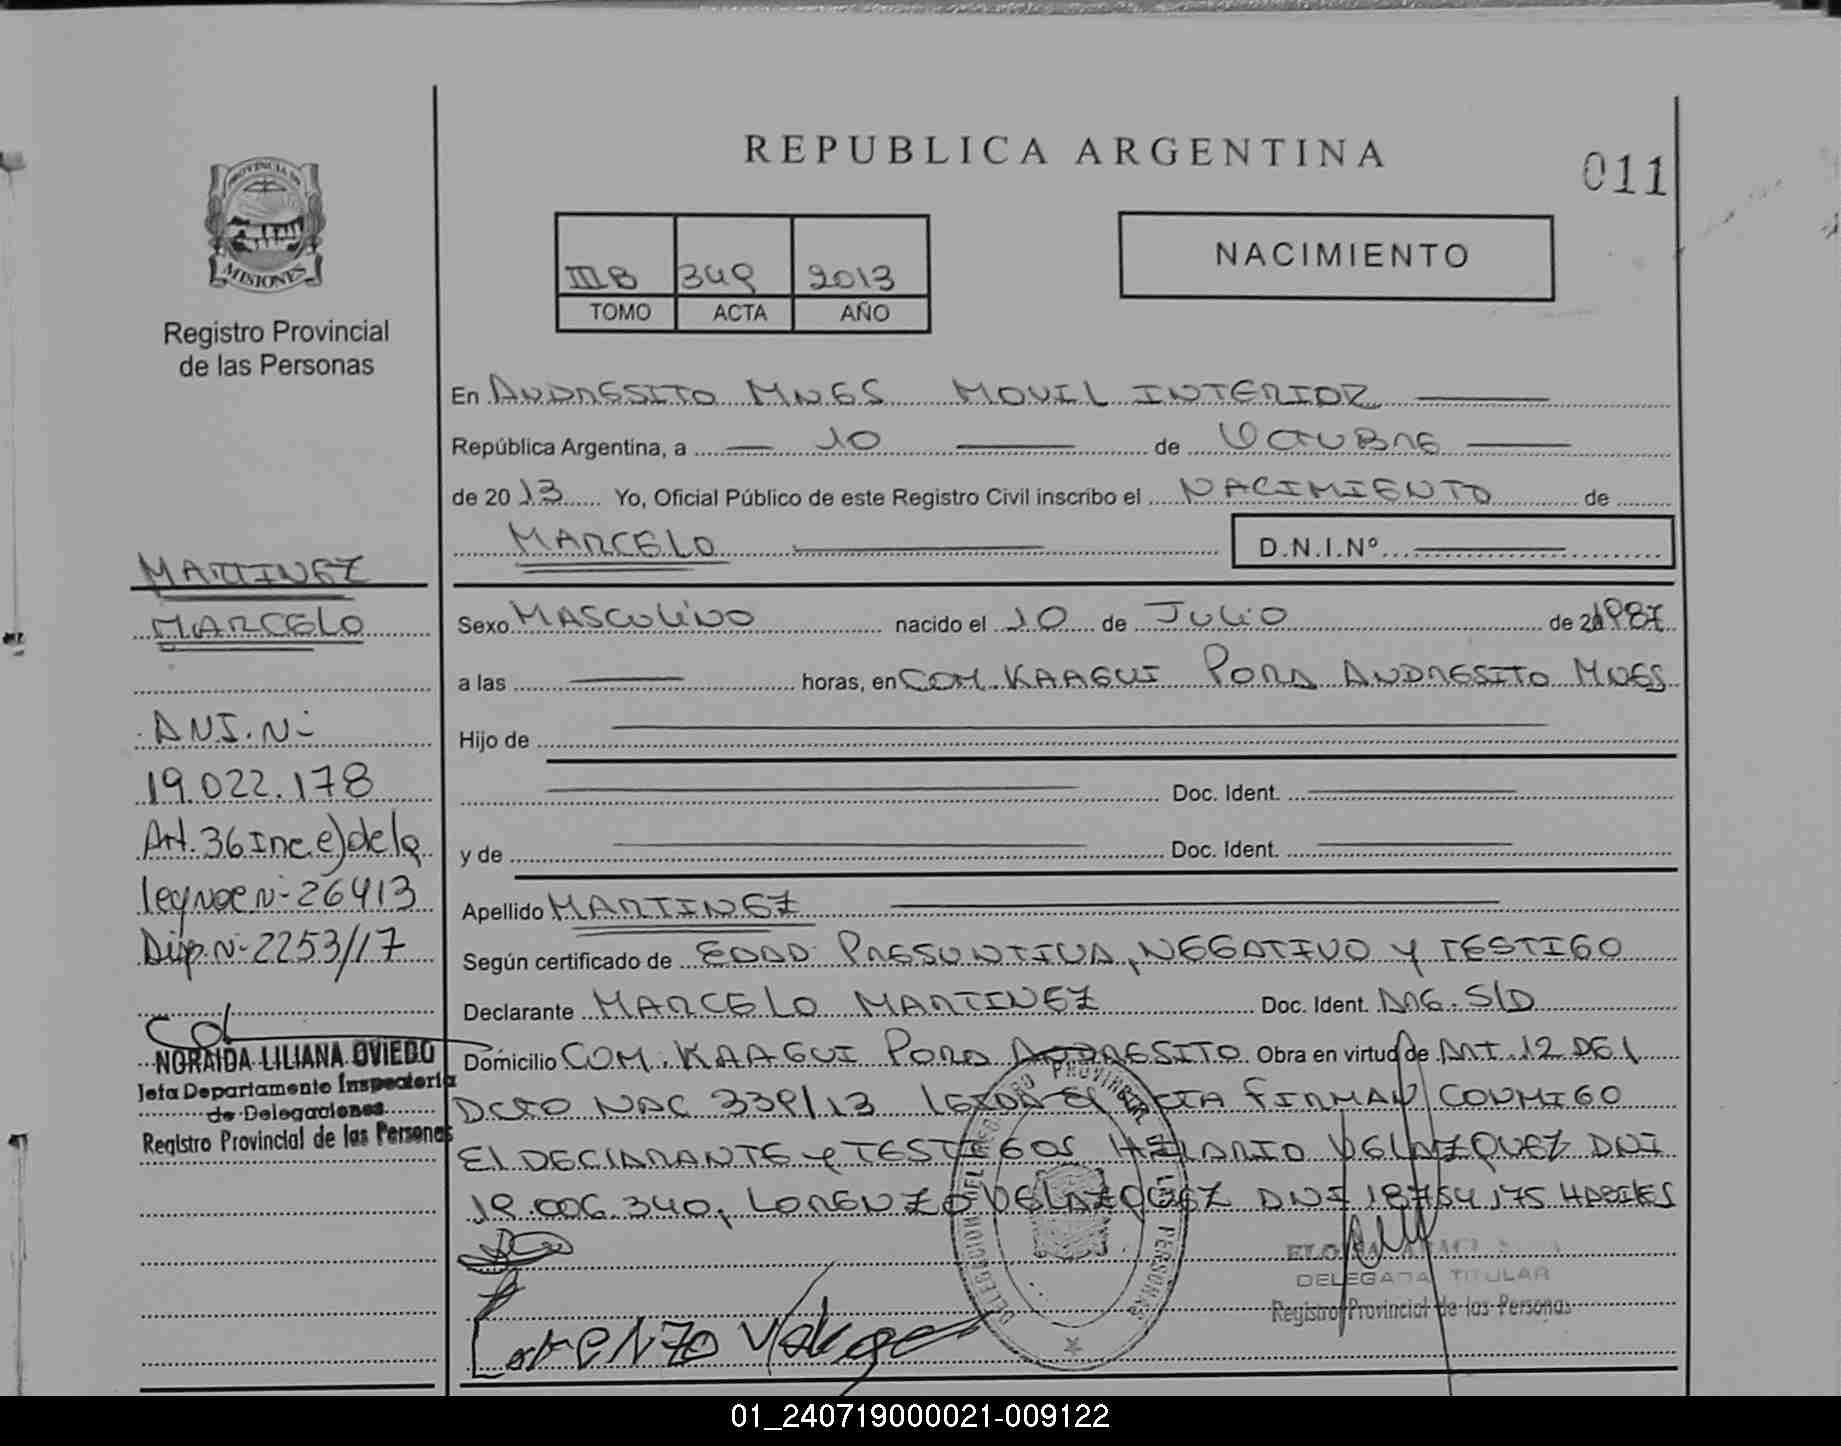 REPUBLICA ARGENTINA
011
PROVINCIA DE
MISIONES
Registro Provincial
de las Personas
III B 349 2013
TOMO ACTA AÑO
NACIMIENTO
En ANDRESITO MNES MOVIL INTERIOR
República Argentina, a 10 de OCTUBRE
de 2013 Yo, Oficial Público de este Registro Civil inscribo el NACIMIENTO de
MARCELO D.N.I.Nº
MARTINEZ
MARCELO
D.N.I. Nº
19.022.178
Art. 36 Inc. e) de la
ley Nac Nº 26413
Disp. Nº 2253/17
NORAIDA LILIANA OVIEDO
Jefa Departamento Inspectoria
de Delegaciones
Registro Provincial de las Personas
Sexo MASCULINO nacido el 10 de JULIO de 1987
a las horas, en COM. KAAGUI PORA ANDRESITO MNES
Hijo de
Doc. Ident.
y de Doc. Ident.
Apellido MARTINEZ
Según certificado de EDAD PRESUNTIVA, NEGATIVO Y TESTIGO
Declarante MARCELO MARTINEZ Doc. Ident. ARG. S/D
Domicilio COM. KAAGUI PORA ANDRESITO Obra en virtud de ART. 12 DEL
DCTO NAC 339/13 LEIDA EL ACTA FIRMAN CONMIGO
EL DECLARANTE Y TESTIGOS HILARIO VELAZQUEZ DNI
19.006.340, LORENZO VELAZQUEZ DNI 18754175 HABILES
DELEGADA TITULAR
Registro Provincial de las Personas
DELEGACION DEL REGISTRO PROVINCIAL DE LAS PERSONAS
Lorenzo
01_240719000021-009122